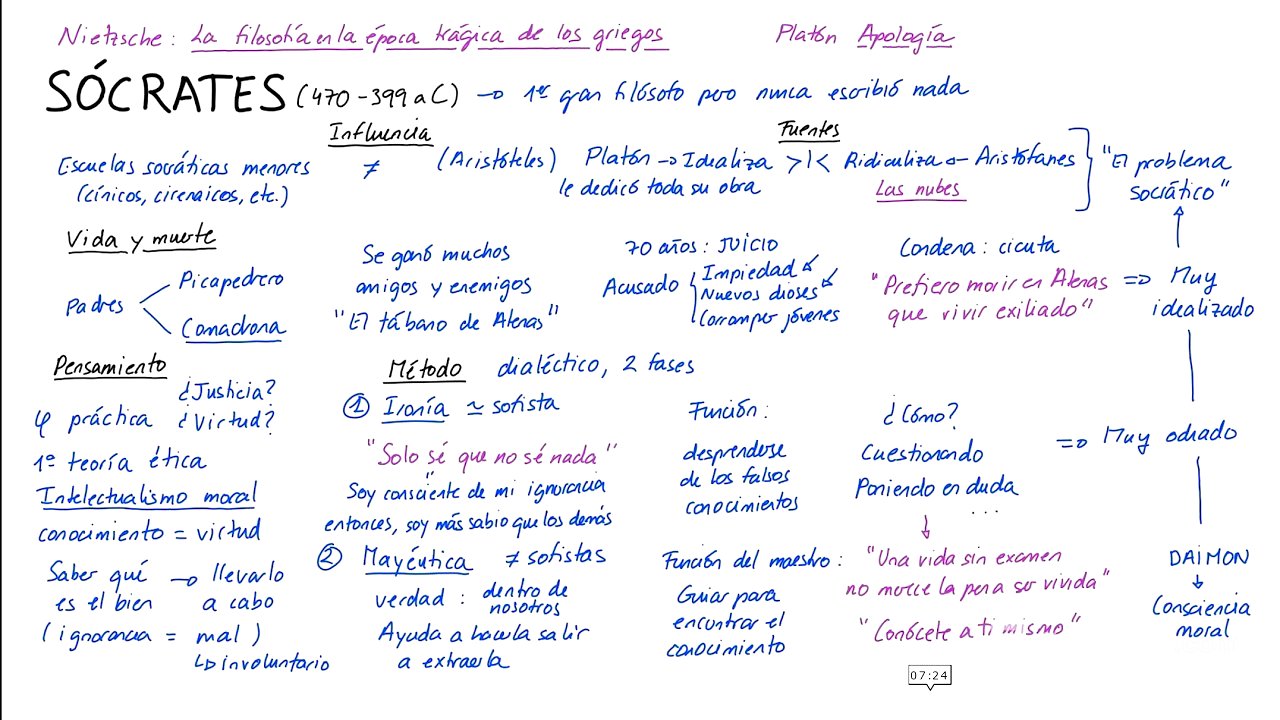 Nietzsche: La filosofía en la época trágica de los griegos
Platón Apología
SÓCRATES (470-399 a C) → 1er gran filósofo pero nunca escribió nada
Influencia
Escuelas socráticas menores ≠ (Aristóteles)
(cínicos, cirenaicos, etc.)
Fuentes
Platón → Idealiza >|< Ridiculiza ← Aristófanes
le dedicó toda su obra
Las nubes
"El problema
socrático"
Vida y muerte
Padres
Picapedrero
Comadrona
Se ganó muchos
amigos y enemigos
"El tábano de Atenas"
70 años: JUICIO
Acusado
Impiedad
Nuevos dioses
Corromper jóvenes
Condena: cicuta
"Prefiero morir en Atenas
que vivir exiliado"
⇒ Muy
idealizado
Pensamiento
¿Justicia?
φ práctica ¿Virtud?
1ª teoría ética
Intelectualismo moral
conocimiento = virtud
Saber qué → llevarlo
es el bien a cabo
(ignorancia = mal)
↳ involuntario
Método dialéctico, 2 fases
① Ironía ≃ sofista
"Solo sé que no sé nada"
"
Soy consciente de mi ignorancia
entonces, soy más sabio que los demás
Función:
desprenderse
de los falsos
conocimientos
¿Cómo?
Cuestionando
Poniendo en duda
...
⇒ Muy odiado
② Mayéutica ≠ sofistas
verdad: dentro de
nosotros
Ayuda a hacerla salir
a extraerla
Función del maestro:
Guiar para
encontrar el
conocimiento
"Una vida sin examen
no merece la pena ser vivida"
"Conócete a ti mismo"
DAIMON
↓
Consciencia
moral
07:24